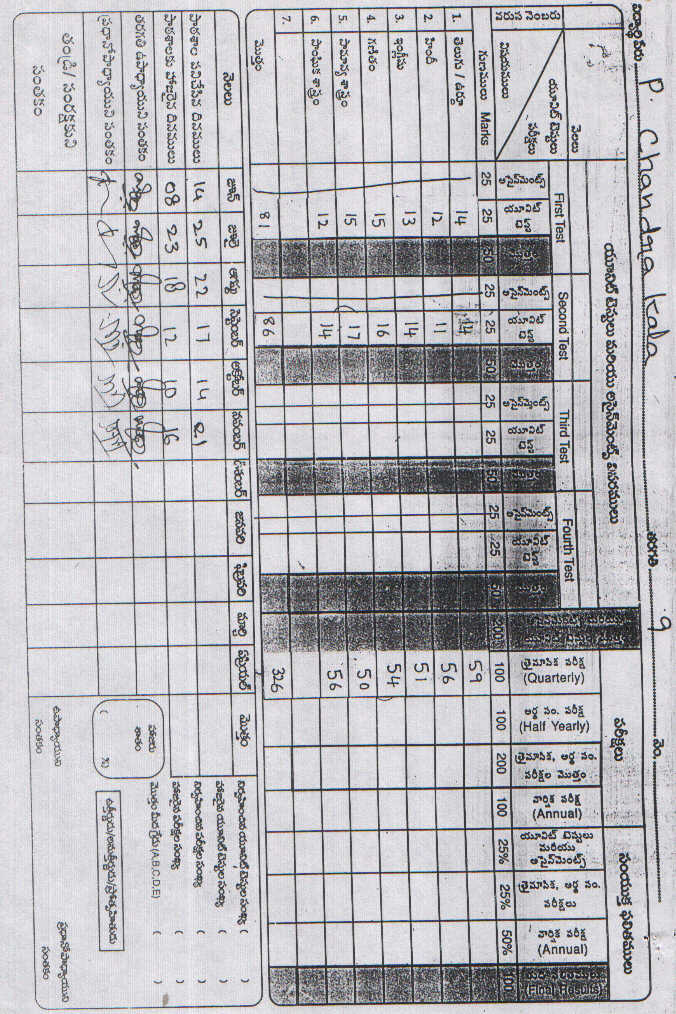 విద్యార్థి పేరు P. Chandra kala తరగతి 9 నెం.
వరుస నెంబరు
నెలలు
యూనిట్ టెస్టులు
పరీక్షలు
విషయములు
గుణములు Marks
యూనిట్ టెస్టులు మరియు అసైన్‌మెంట్స్ వివరములు
పరీక్షలు
సంయుక్త ఫలితములు
First Test
Second Test
Third Test
Fourth Test
అసైన్‌మెంట్స్ యూనిట్ టెస్ట్ మొత్తం
అసైన్‌మెంట్స్ యూనిట్ టెస్ట్ మొత్తం
అసైన్‌మెంట్స్ యూనిట్ టెస్ట్ మొత్తం
అసైన్‌మెంట్స్ యూనిట్ టెస్ట్ మొత్తం
త్రైమాసిక పరీక్ష (Quarterly)
అర్ధ సం. పరీక్ష (Half Yearly)
త్రైమాసిక, అర్ధ సం. పరీక్షల మొత్తం
వార్షిక పరీక్ష (Annual)
యూనిట్ టెస్టులు మరియు అసైన్‌మెంట్స్
త్రైమాసిక, అర్ధ సం. పరీక్షలు
వార్షిక పరీక్ష (Annual)
(Final Results)
25 25 50 25 25 50 25 25 50 25 25 50 200 100 100 200 100 25% 25% 50% 100
1. తెలుగు / ఉర్దూ 14 14 59
2. హిందీ 12 11 56
3. ఇంగ్లీషు 13 14 51
4. గణితం 15 16 54
5. సామాన్య శాస్త్రం 15 17 50
6. సాంఘిక శాస్త్రం 12 14 56
7.
మొత్తం 81 86 326
నెలలు జూన్ జూలై ఆగస్టు సెప్టెంబర్ అక్టోబర్ నవంబర్ డిశంబర్ జనవరి ఫిబ్రవరి మార్చి ఏప్రియల్ మొత్తం
పాఠశాల పనిచేసిన దినములు 14 25 22 17 14 21
పాఠశాలకు హాజరైన దినములు 08 23 18 12 10 16
తరగతి ఉపాధ్యాయుని సంతకం
ప్రధానోపాధ్యాయుని సంతకం
తండ్రి/ సంరక్షకుని
సంతకం
హాజరు
శాతం
( %)
నిర్వహించిన యూనిట్ టెస్టుల సంఖ్య ( )
హాజరైన యూనిట్ టెస్టుల సంఖ్య ( )
నిర్వహించిన పరీక్షల సంఖ్య ( )
హాజరైన పరీక్షల సంఖ్య ( )
మొత్తం మీద గ్రేడు (A,B,C,D,E) ( )
ఉత్తీర్ణుడు/అనుత్తీర్ణుడు/ప్రోత్సహితుడు
ఉపాధ్యాయుని
సంతకం
ప్రధానోపాధ్యాయుని
సంతకం